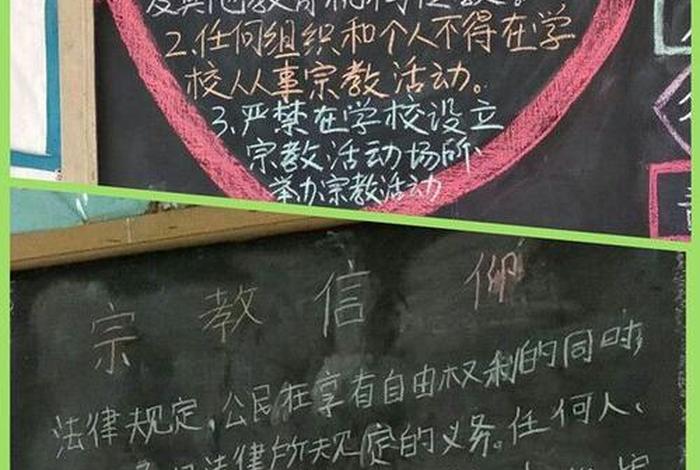 及其他教育机构传教。
2.任何组织和个人不得在学
校从事宗教活动。
3.严禁在学校设立
宗教活动场所
举办宗教活动
宗教信仰
法律规定,公民在享有自由权利的同时,
法律所规定的义务。任何人、